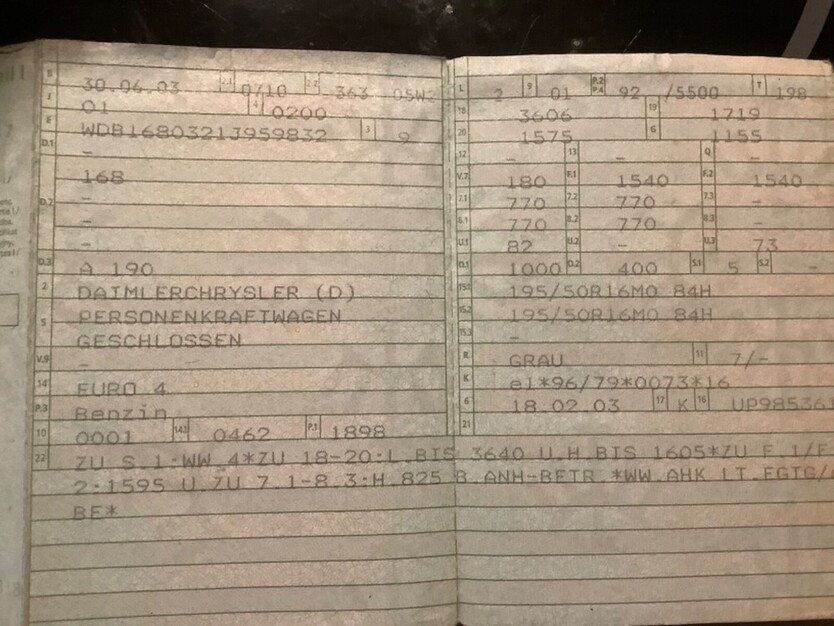 B 30.06.03 2.1 0710 2.2 363 05W2
J 01 4 0200
E WDB1680321J959832 3 9
D.1 -
168
D.2 -
-
-
D.3 A 190
2 DAIMLERCHRYSLER (D)
5 PERSONENKRAFTWAGEN
GESCHLOSSEN
V.9 -
14 EURO 4
P.3 Benzin
10 0001 14.1 0462 P.1 1898
L 2 9 01 P.2 P.4 92 /5500 T 198
18 3606 19 1719
20 1575 G 1155
12 - 13 - Q -
V.7 180 F.1 1540 F.2 1540
7.1 770 7.2 770 7.3 -
8.1 770 8.2 770 8.3 -
U.1 82 U.2 - U.3 73
O.1 1000 O.2 400 S.1 5 S.2 -
15.1 195/50R16MO 84H
15.2 195/50R16MO 84H
15.3 -
R GRAU 11 7/-
K e1*96/79*0073*16
6 18.02.03 17 K 16 UP985361
21
22 ZU S.1:WW 4*ZU 18-20:L.BIS 3640 U.H.BIS 1605*ZU F.1/F
2:1595 U.ZU 7.1-8.3:H.825 B.ANH-BETR.*WW.AHK LT.EGTG/
BE*